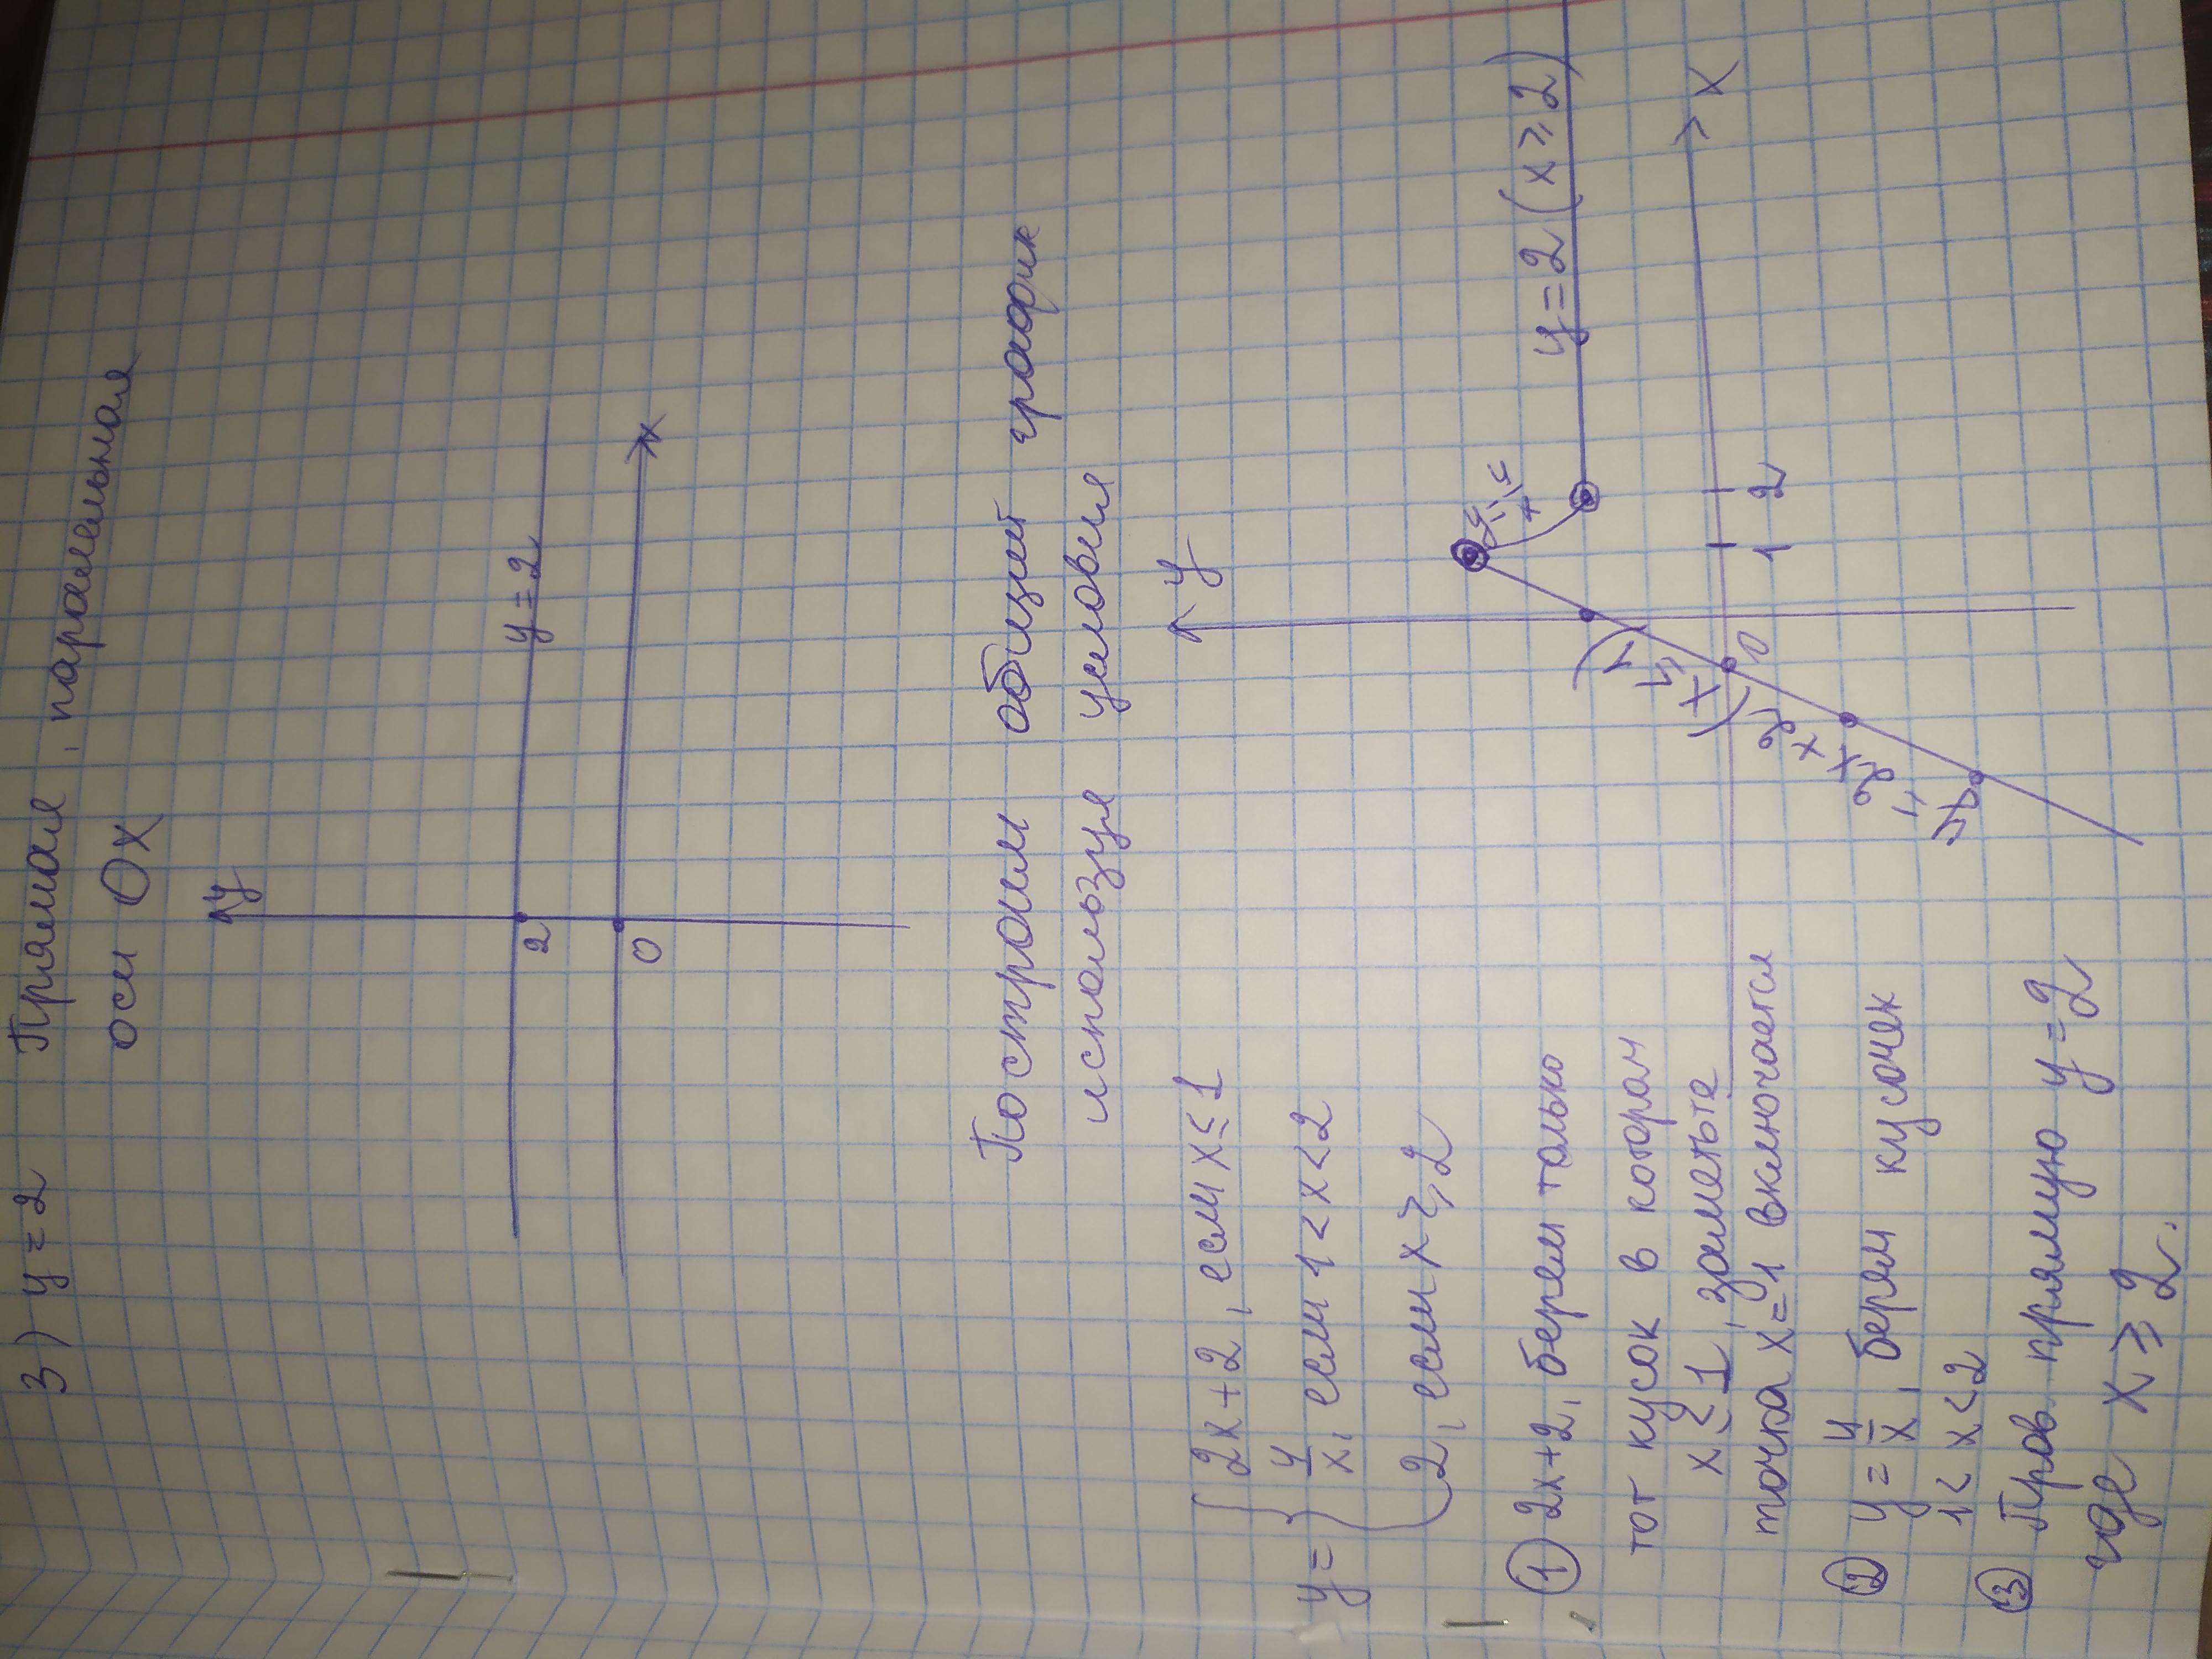 3) y=2 Прямая, паралельная
оси Ox
y
y=2
2
0
x
Построим общий график
используя условия
y= { 2x+2, если x≤1
4/x, если 1<x<2
2, если x≥2
① 2x+2, берем только
тот кусок в котором
x≤1, заметьте
точка x=1 включается
② y=4/x, берем кусочек
1<x<2
③ Пров. прямую y=2
где x≥2.
y
y=4/x
y=2 (x≥2)
x
0
1 2
y=2x+2 (x≤1)